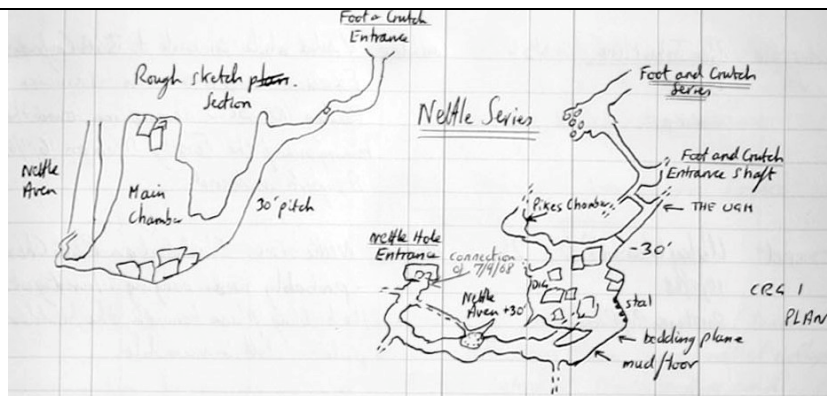 Foot & Crutch
Entrance
Rough sketch plan.
Section
Nettle
Aven
Main
Chamber
30' pitch
Nettle Series
Foot and Crutch
Series
Foot and Crutch
Entrance Shaft
Pikes Chamber
THE UGH
Nettle Hole
Entrance
connection
of 7/9/68
-30'
DIG
Nettle
Aven +30'
stal
CRG 1
PLAN
bedding plane
mud floor